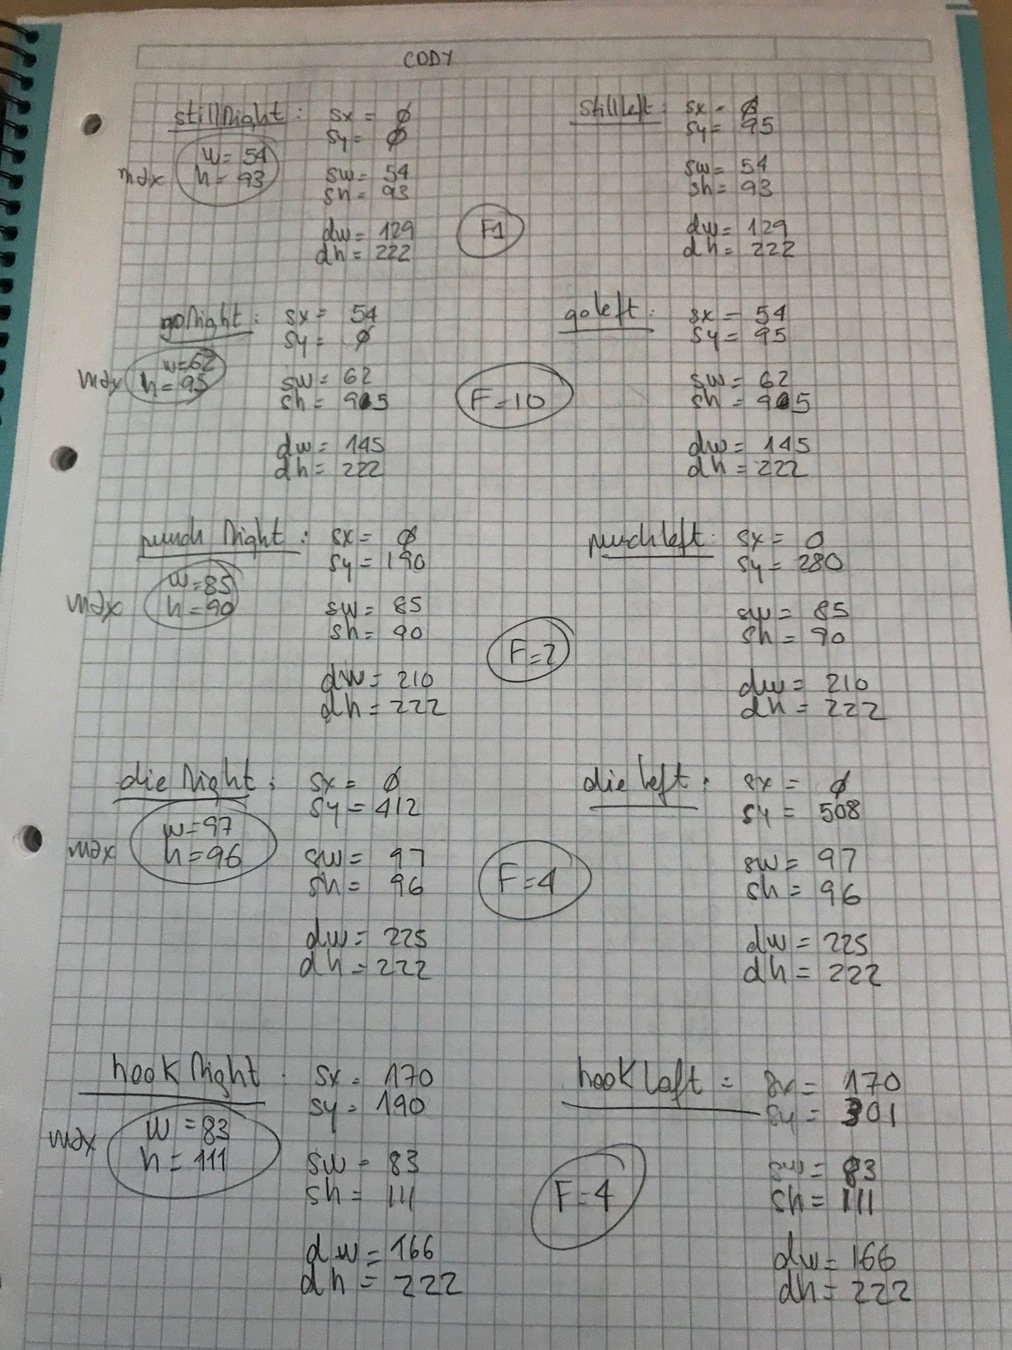 CODY
stillRight: sx = 0
sy = 0
max w = 54
h = 93
sw = 54
sh = 93
dw = 129
dh = 222
F1
stillLeft: sx = 0
sy = 95
sw = 54
sh = 93
dw = 129
dh = 222
goRight: sx = 54
sy = 0
max w=62
h = 95
sw = 62
sh = 95
dw = 145
dh = 222
F=10
goLeft: sx = 54
sy = 95
sw = 62
sh = 95
dw = 145
dh = 222
punch Right: sx = 0
sy = 190
max w=85
h = 90
sw = 85
sh = 90
dw = 210
dh = 222
F=2
punchleft: sx = 0
sy = 280
sw = 85
sh = 90
dw = 210
dh = 222
die Right: sx = 0
sy = 412
max w=97
h=96
sw = 97
sh = 96
dw = 225
dh = 222
F=4
die left: sx = 0
sy = 508
sw = 97
sh = 96
dw = 225
dh = 222
hook Right: sx = 170
sy = 190
max w = 83
h = 111
sw = 83
sh = 111
dw = 166
dh = 222
F=4
hook Left = sx = 170
sy = 301
sw = 83
sh = 111
dw = 166
dh = 222